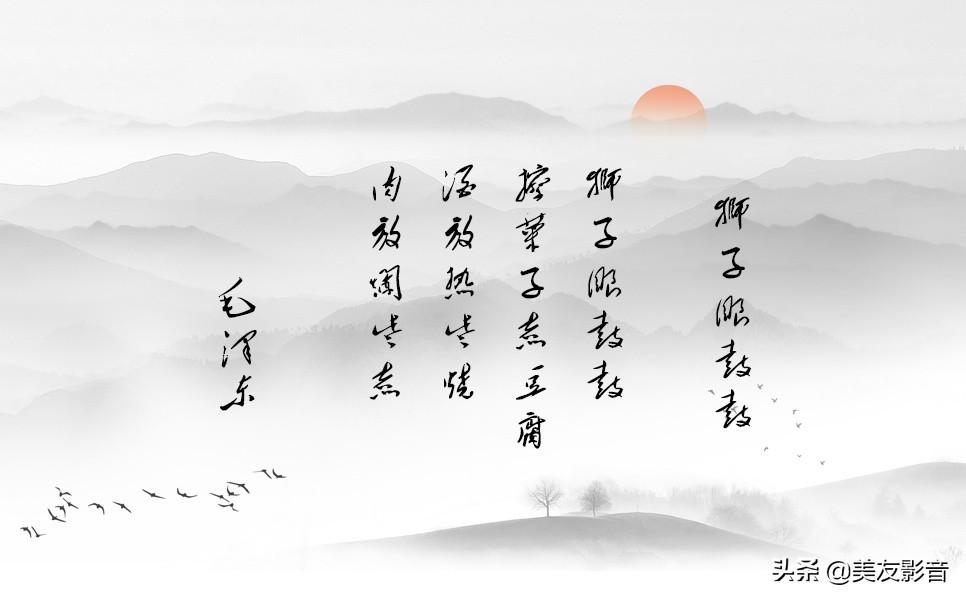 狮子眼鼓鼓
狮子眼鼓鼓
擦菜子煮豆腐
酒放热些烧
肉放烂些煮
毛泽东
头条 @美友影音